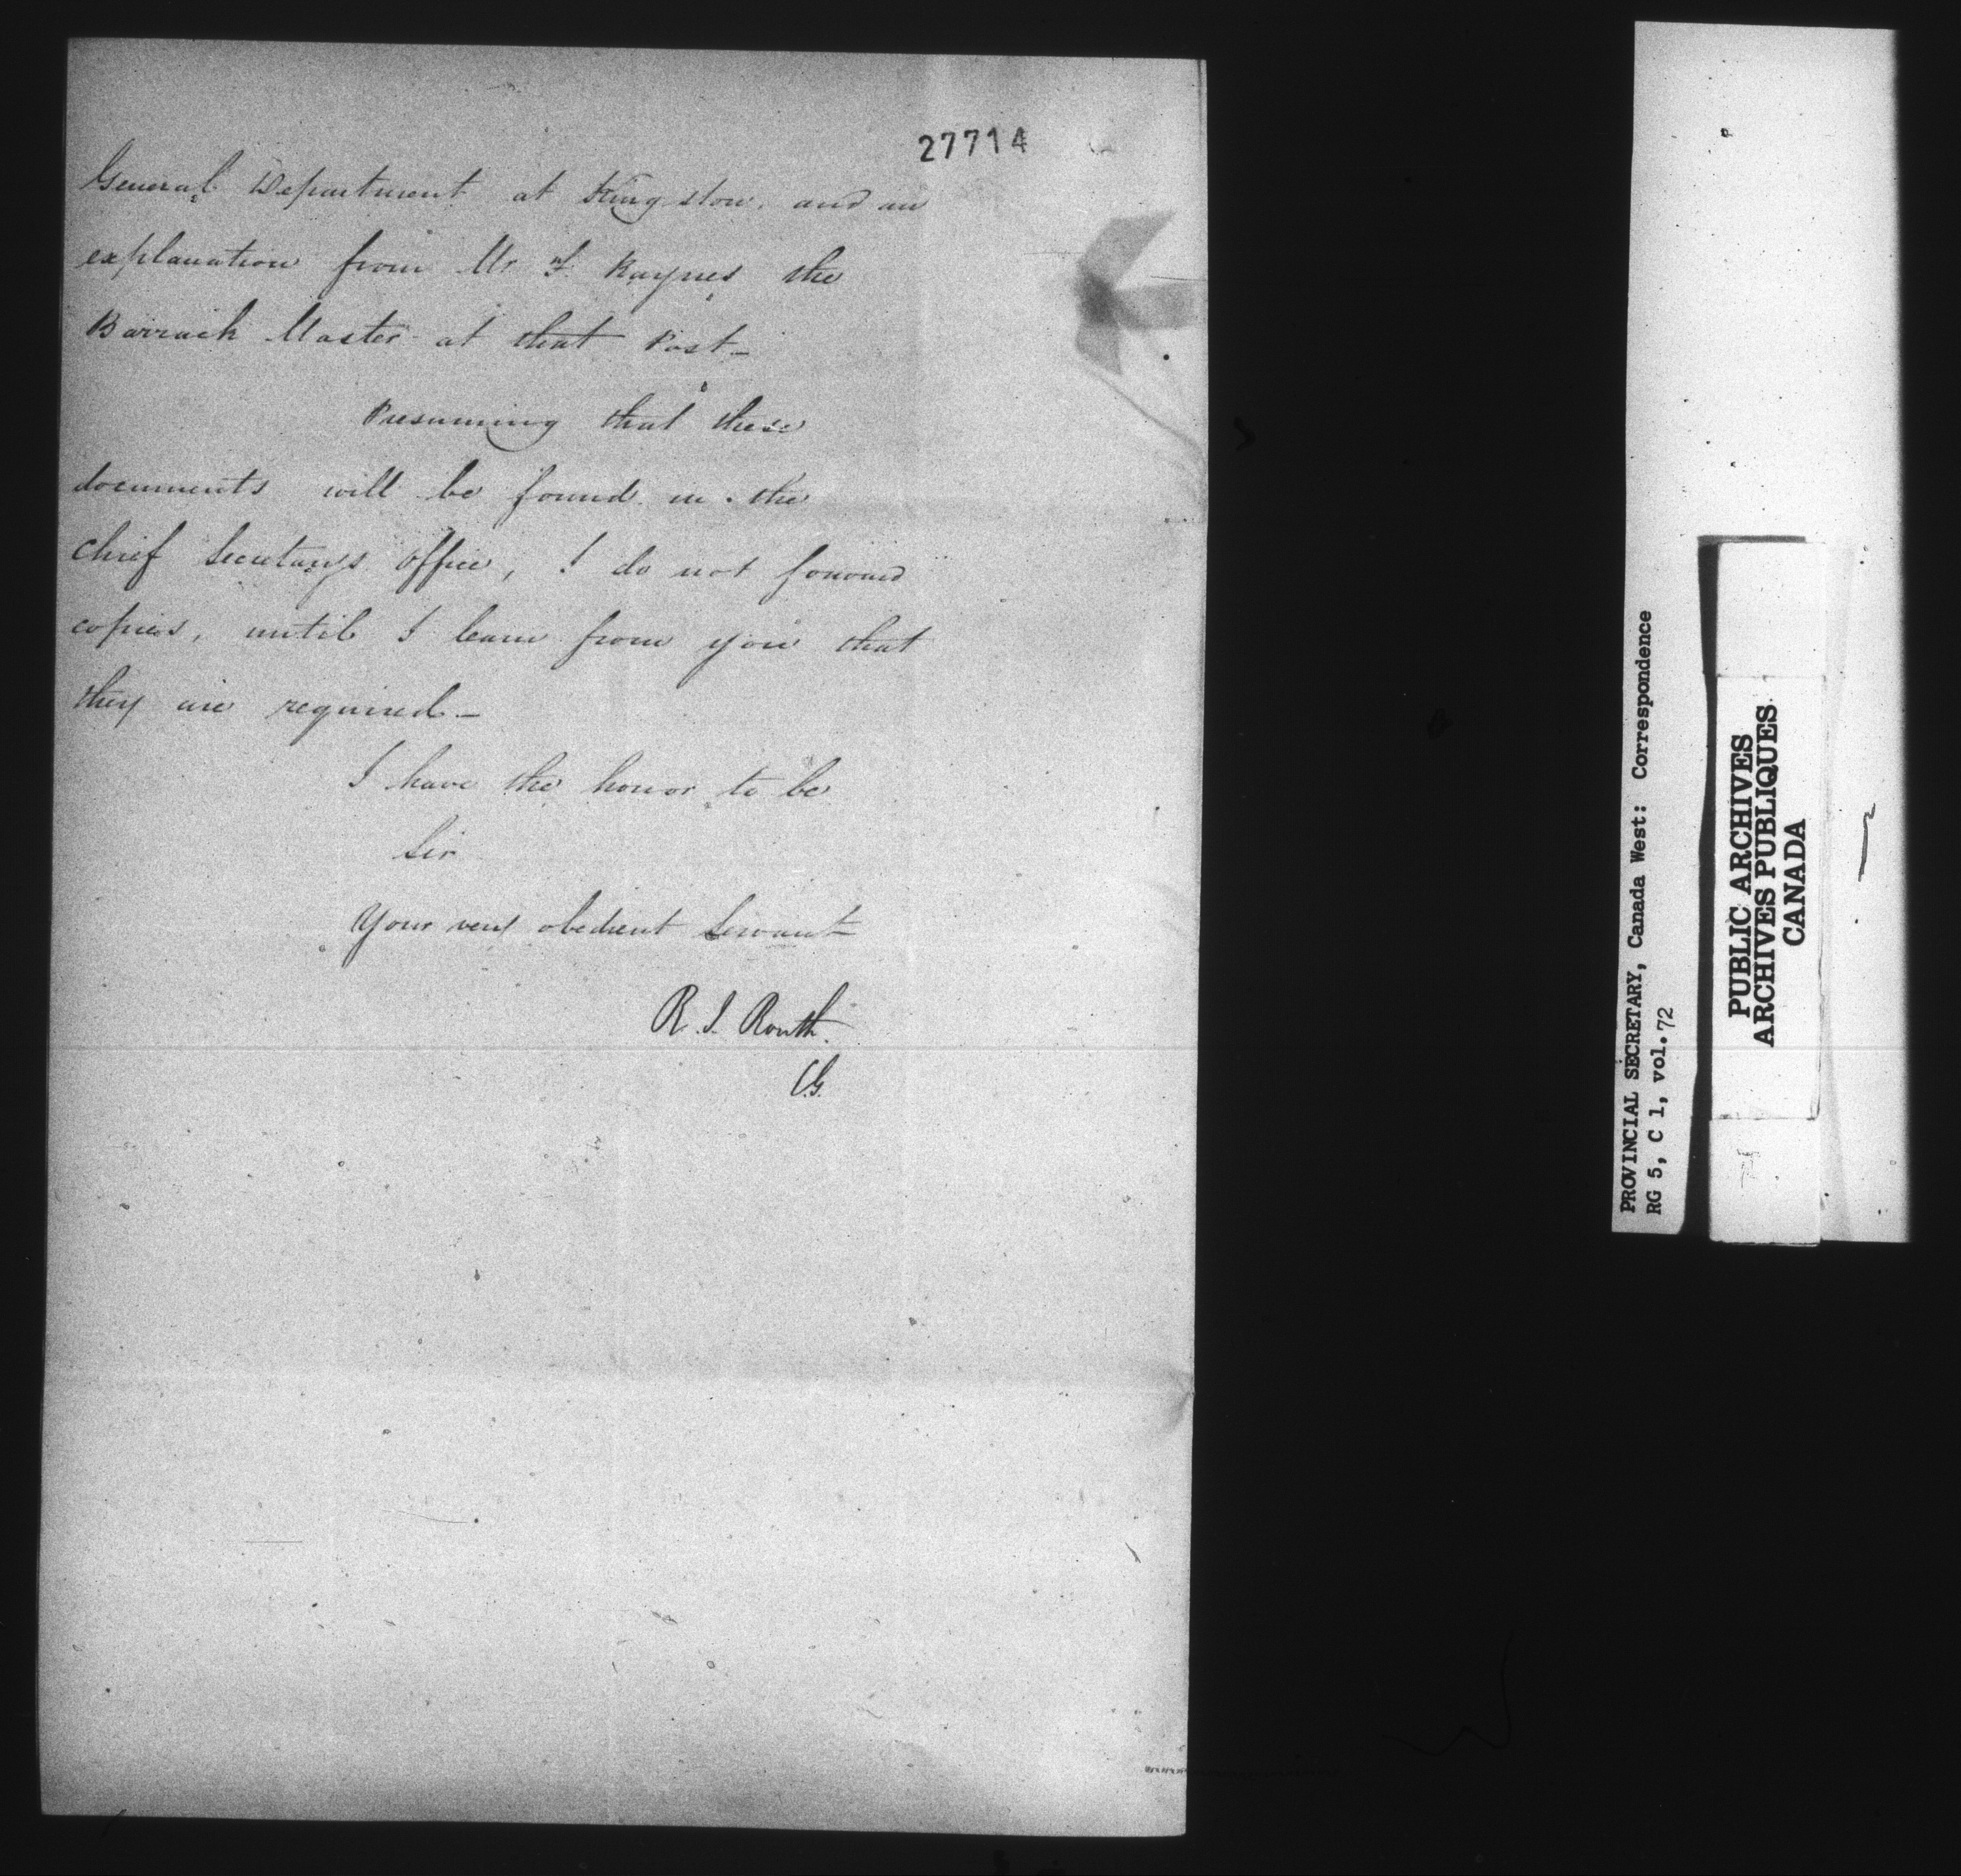 27714
General Department at Kingston. and an
explanation from Mr Raynes the
Barrack Master at that Post-
Presuming that these
documents will be found in the
Chief Secretary's Office, I do not forward
copies, until I learn from you that
they are required-
I have the honor to be
Sir
Your very obedient Servant
R. I. Routh.
C.G.
PROVINCIAL SECRETARY, Canada West: Correspondence
RG 5, C 1, vol. 72
PUBLIC ARCHIVES
ARCHIVES PUBLIQUES
CANADA